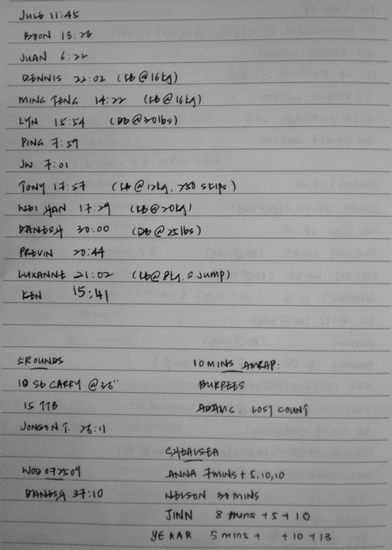 JULS 11:45
BOON 13:26
JUAN 6:22
DENNIS 22:02 (KB@16kg)
MING TENG 14:22 (KB@16kg)
LYN 15:54 (DB@20lbs)
PING 7:59
JW 7:01
TONY 17:57 (KB@12kg, 250 SKIPS)
WEI HAN 17:29 (KB@20kg)
DANESH 30:00 (DB@25lbs)
PREVIN 20:44
LUXANNE 21:02 (KB@8kg, S JUMP)
KEN 15:41
5 ROUNDS
10 SB CARRY @36"
15 TTB
JONSON T. 26:11
10 MINS AMRAP:
BURPEES
ADAM C. LOST COUNT
WOD 072509
DANESH 37:10
CHELSEA
ANNA 7MINS + 5,10,10
NELSON MINS
JINN 8 MINS + 5 + 10
YE KAR 5 MINS + + 10 + 13